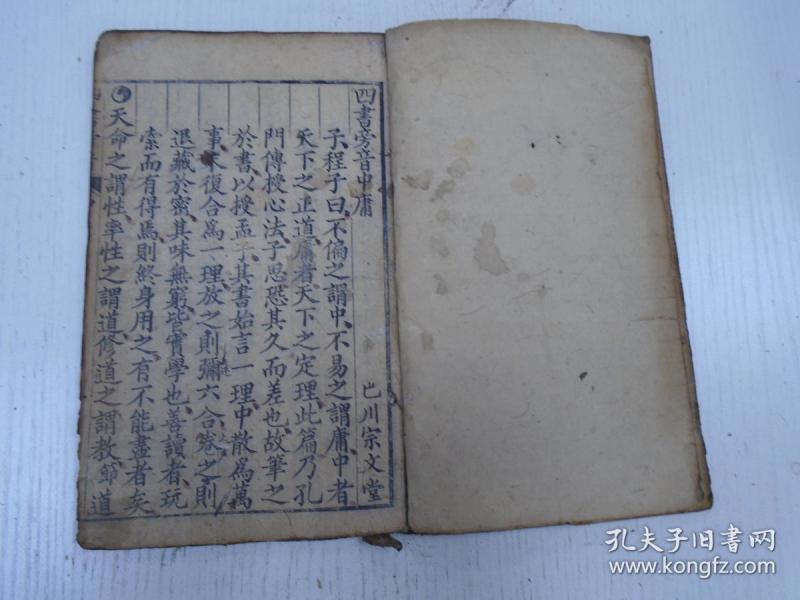 四書旁音中庸
巴川宗文堂
子程子曰不偏之謂中不易之謂庸中者
天下之正道庸者天下之定理此篇乃孔
門傳授心法子思恐其久而差也故筆之
於書以授孟子其書始言一理中散爲萬
事末復合爲一理放之則彌六合卷之則
退藏於密其味無窮皆實學也善讀者玩
索而有得焉則終身用之有不能盡者矣
天命之謂性率性之謂道修道之謂教節道
孔夫子旧书网
www.kongfz.com